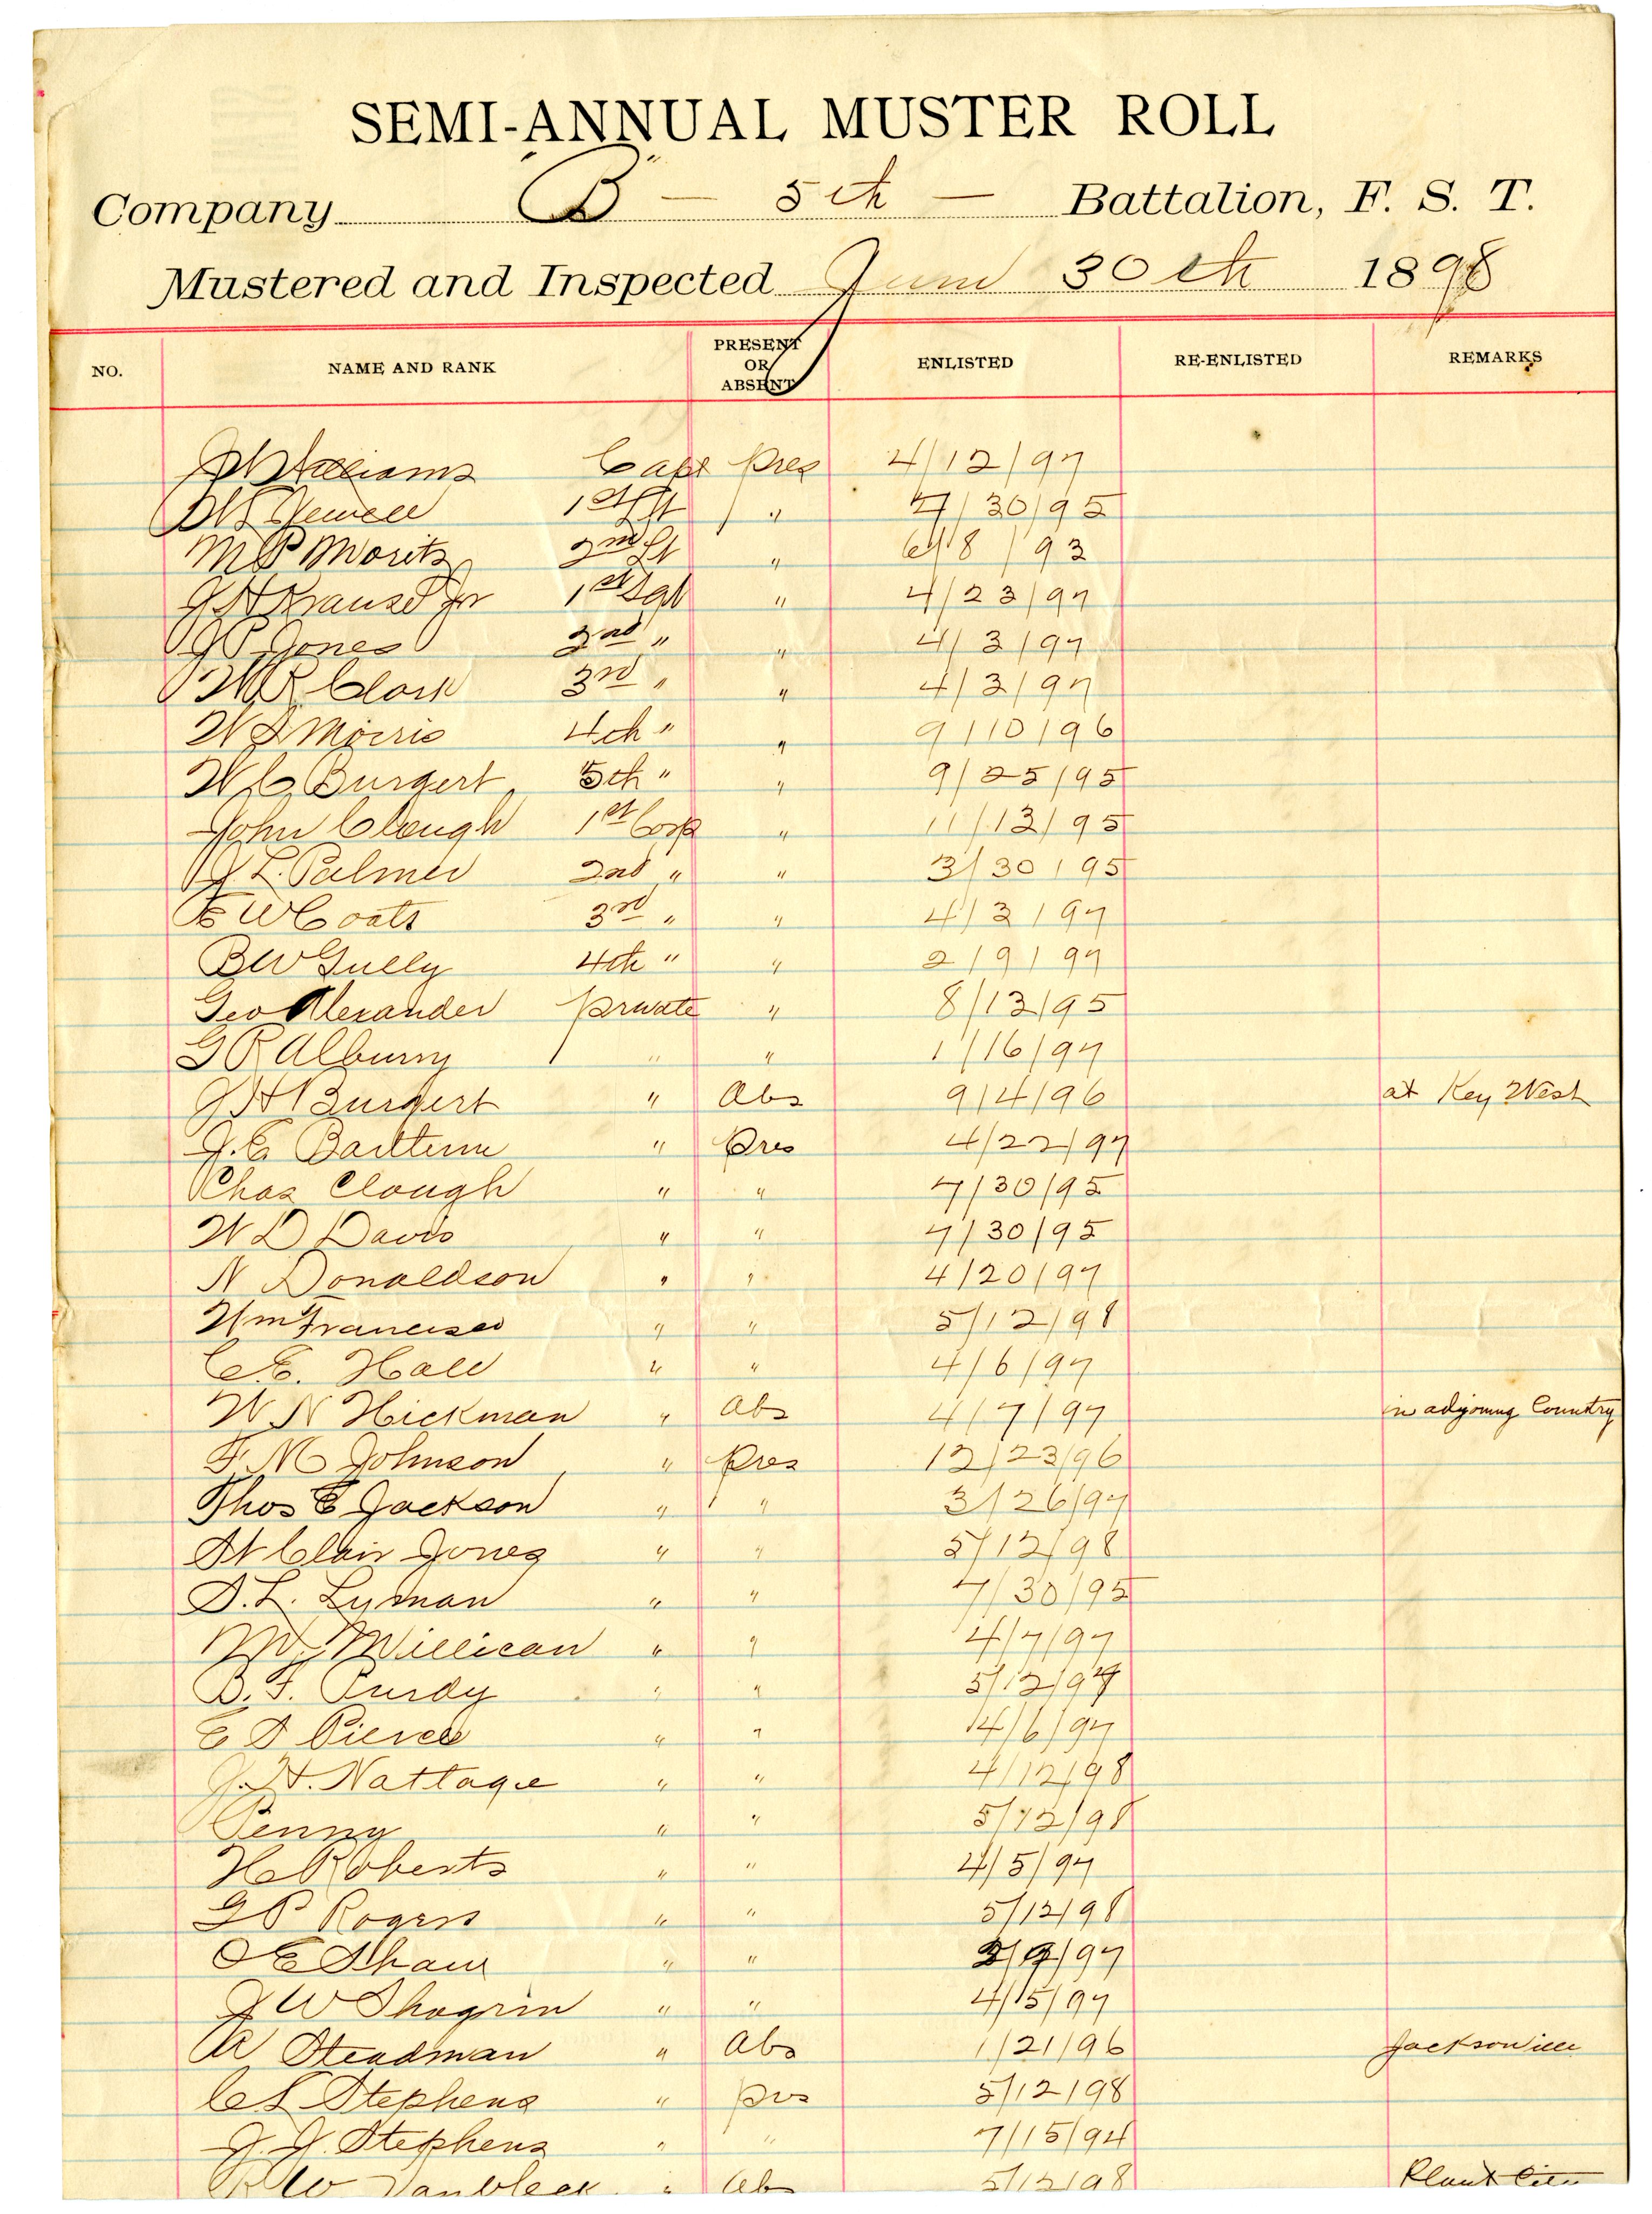 SEMI-ANNUAL MUSTER ROLL
Company "B" — 5th — Battalion, F. S. T.
Mustered and Inspected June 30th 1898
NO. NAME AND RANK PRESENT OR ABSENT ENLISTED RE-ENLISTED REMARKS
Williams Capt Pres 4/12/97
Jewell 1st Lt " 7/30/95
M P Moritz 2nd Lt " 6/18/93
J H Krause Jr 1st Sgt " 4/23/97
J P Jones 2nd " " 4/3/97
W R Clark 3rd " " 4/3/97
W S Morris 4th " " 9/10/96
W C Burgert 5th " " 9/25/95
John Clough 1st Corp " 11/13/95
J L. Palmer 2nd " " 3/30/95
E W Coats 3rd " " 4/3/97
B W Gully 4th " " 2/9/97
Geo Alexander private " 8/13/95
G R Albury " " 1/16/97
J H Burgert " Abs 9/4/96 at Key West
J. E. " Pres 4/22/97
Chas Clough " " 7/30/95
W D Davis " " 7/30/95
N Donaldson " " 4/20/97
Wm Francisco " " 5/12/98
C. E. Hall " " 4/6/97
W N Hickman " Abs 4/7/97 in adjoining Country
F M Johnson " Pres 12/23/96
Thos E Jackson " " 3/26/97
St Clair Jones " " 5/12/98
S. L. Lyman " " 7/30/95
Millican " " 4/7/97
B. F. Purdy " " 5/12/97
E S Pierce " " 4/6/97
J. H. Nattage " " 4/12/98
Penny " " 5/12/98
H Roberts " " 4/5/97
G P Rogers " " 5/12/98
O E Shaw " " 97
J W Shogrin " " 4/15/97
W Steadman " Abs 1/21/96 Jacksonville
C L Stephens " prs 5/12/98
J. J. Stephens " " 7/15/94
R W Vanvleck " Abs 5/12/98 Plant City